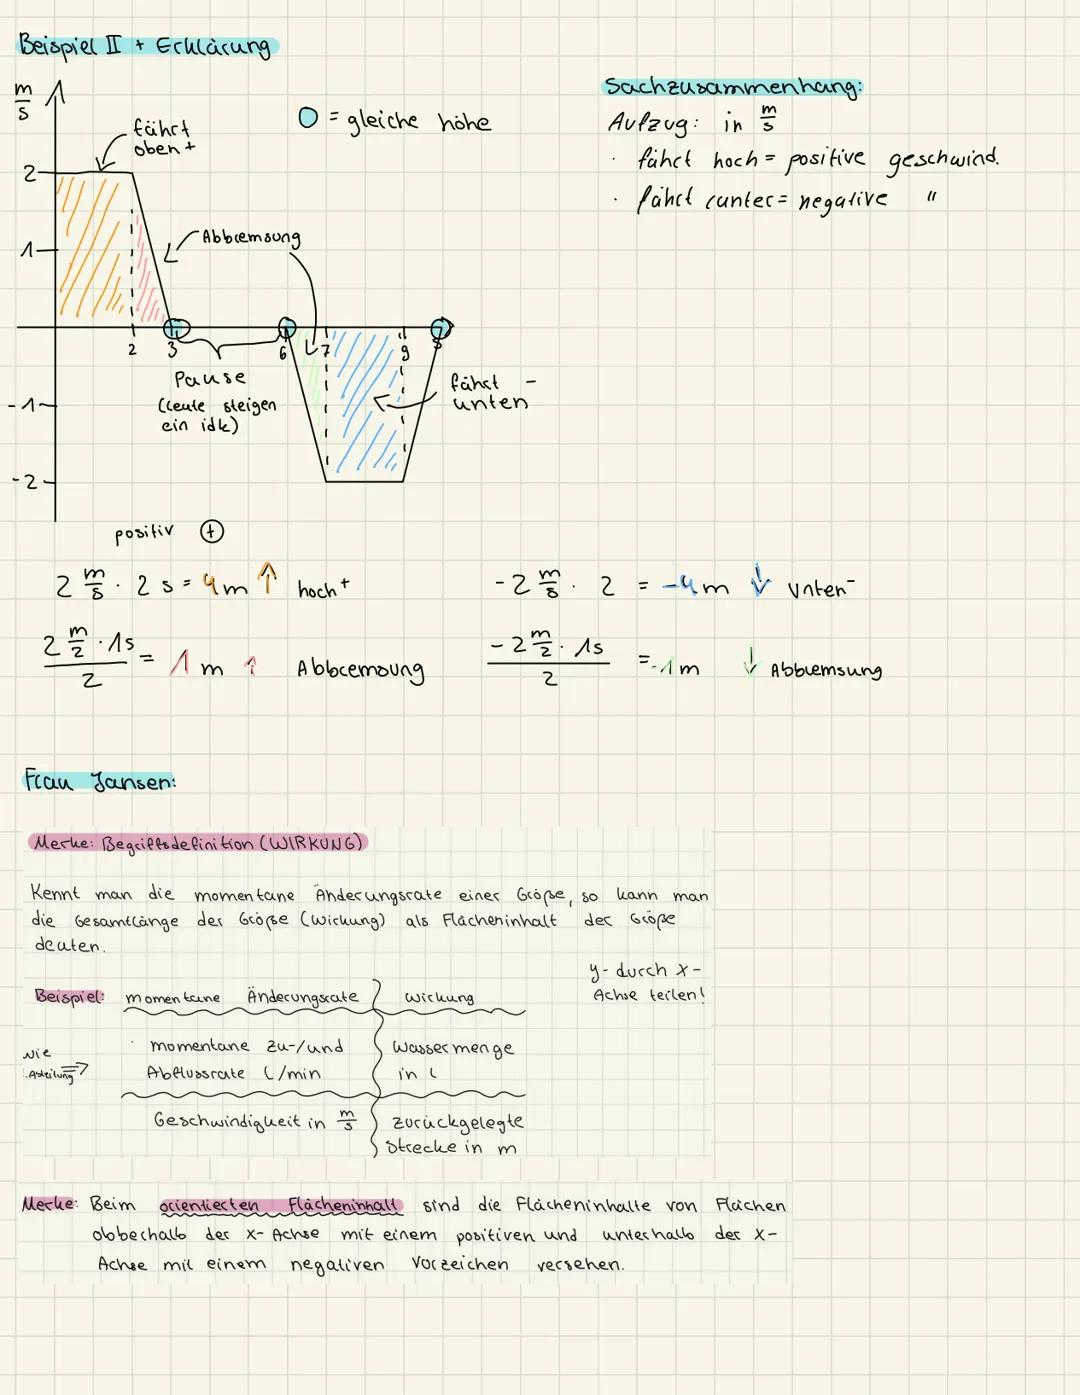 Beispiel II + Erklärung
m/s
fährt
oben +
= gleiche höhe
Sachzusammenhang:
Aufzug: in m/s
· fährt hoch = positive geschwind.
· fährt runter = negative "
2
1
Abbremsung
2 3 6 7 9
Pause
(leute steigen
ein idk)
fährt -
unten
-1
-2
positiv +
2 m/s · 2 s = 4 m ↑ hoch +
-2 m/s · 2 = -4 m ↓ unten -
2 m/2 · 1s / 2 = 1 m ↑ Abbremsung
-2 m/2 · 1s / 2 = -1 m ↓ Abbremsung
Frau Jansen:
Merke: Begriffsdefinition (WIRKUNG)
Kennt man die momentane Änderungsrate einer Größe, so kann man
die Gesamtlänge der Größe (Wirkung) als Flächeninhalt der Größe
deuten.
y- durch x-
Achse teilen!
Beispiel: momentane Änderungsrate Wirkung
· momentane Zu-/und
Abflussrate l/min
Wassermenge
in l
wie
Ableitung
Geschwindigkeit in m/s
zurückgelegte
Strecke in m
Merke: Beim orientierten Flächeninhalt sind die Flächeninhalte von Flächen
obberhalb der x-Achse mit einem positiven und unterhalb der x-
Achse mit einem negativen Vorzeichen versehen.